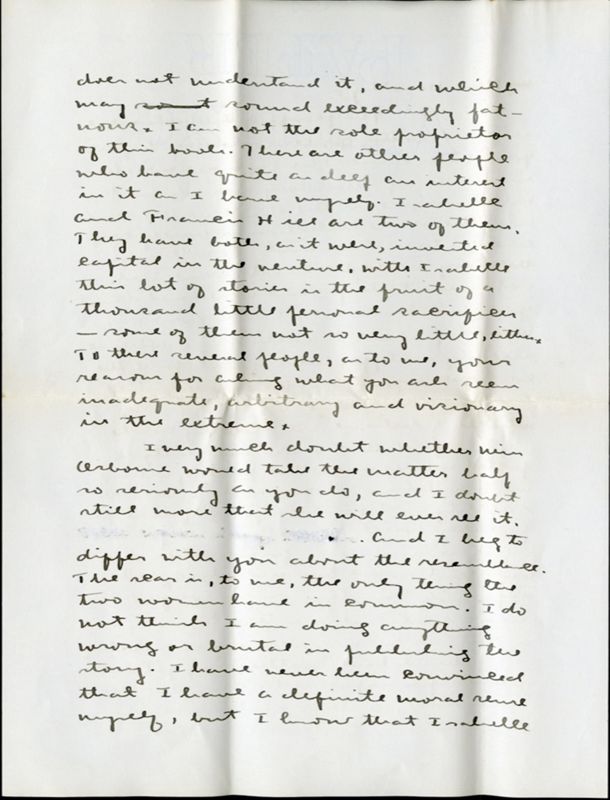 does not understand it, and which
may sound exceedingly fat-
uous. I am not the sole proprietor
of this book. There are other people
who have quite as deep an interest
in it as I have myself. Isabelle
and Francis Hill are two of them.
They have both, as it were, invested
capital in the venture, with Isabelle
this lot of stories is the fruit of a
thousand little personal sacrifices
— some of them not so very little, either.
To these several people, as to me, your
reasons for asking what you ask seem
inadequate, arbitrary and visionary
in the extreme.
I very much doubt whether Miss
Osborne would take the matter half
so seriously as you do, and I doubt
still more that she will ever see it.
And I beg to
differ with you about the resemblance.
The scar is, to me, the only thing the
two women have in common. I do
not think I am doing anything
wrong or brutal in publishing the
story. I have never been convinced
that I have a definite moral sense
myself, but I know that Isabelle